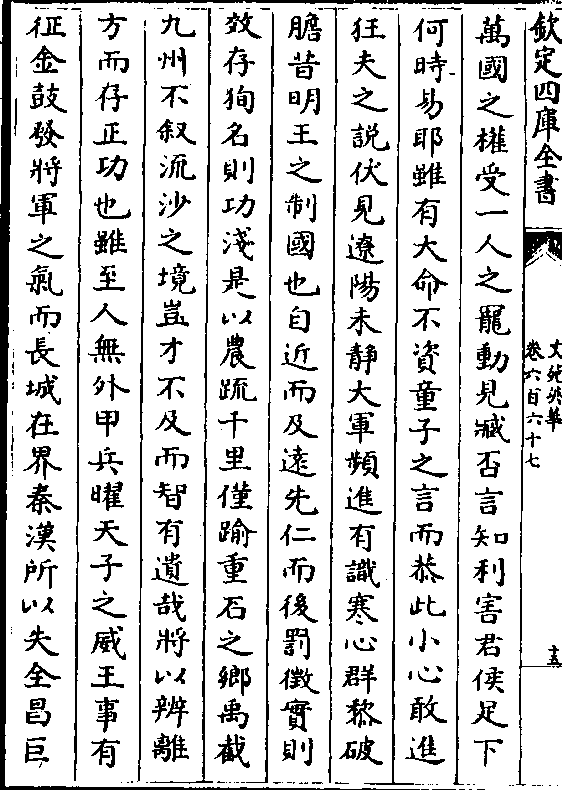 欽定四庫全書
文苑英華
卷六百六十七
十五
萬國之權受一人之寵動見臧否言知利害君侯足下
何時易耶雖有大命不資童子之言而恭此小心敢進
狂夫之說伏見遼陽未靜大軍頻進有識寒心群黎破
膽昔明王之制國也自近而及遠先仁而後罰徵實則
效存狥名則功淺是以農疏千里僅踰重石之鄉禹截
九州不叙流沙之境豈才不及而智有遺哉將以辨離
方而存正功也雖至人無外甲兵曜天子之威王事有
征金鼓發將軍之氣而長城在界秦漢所以失全昌巨